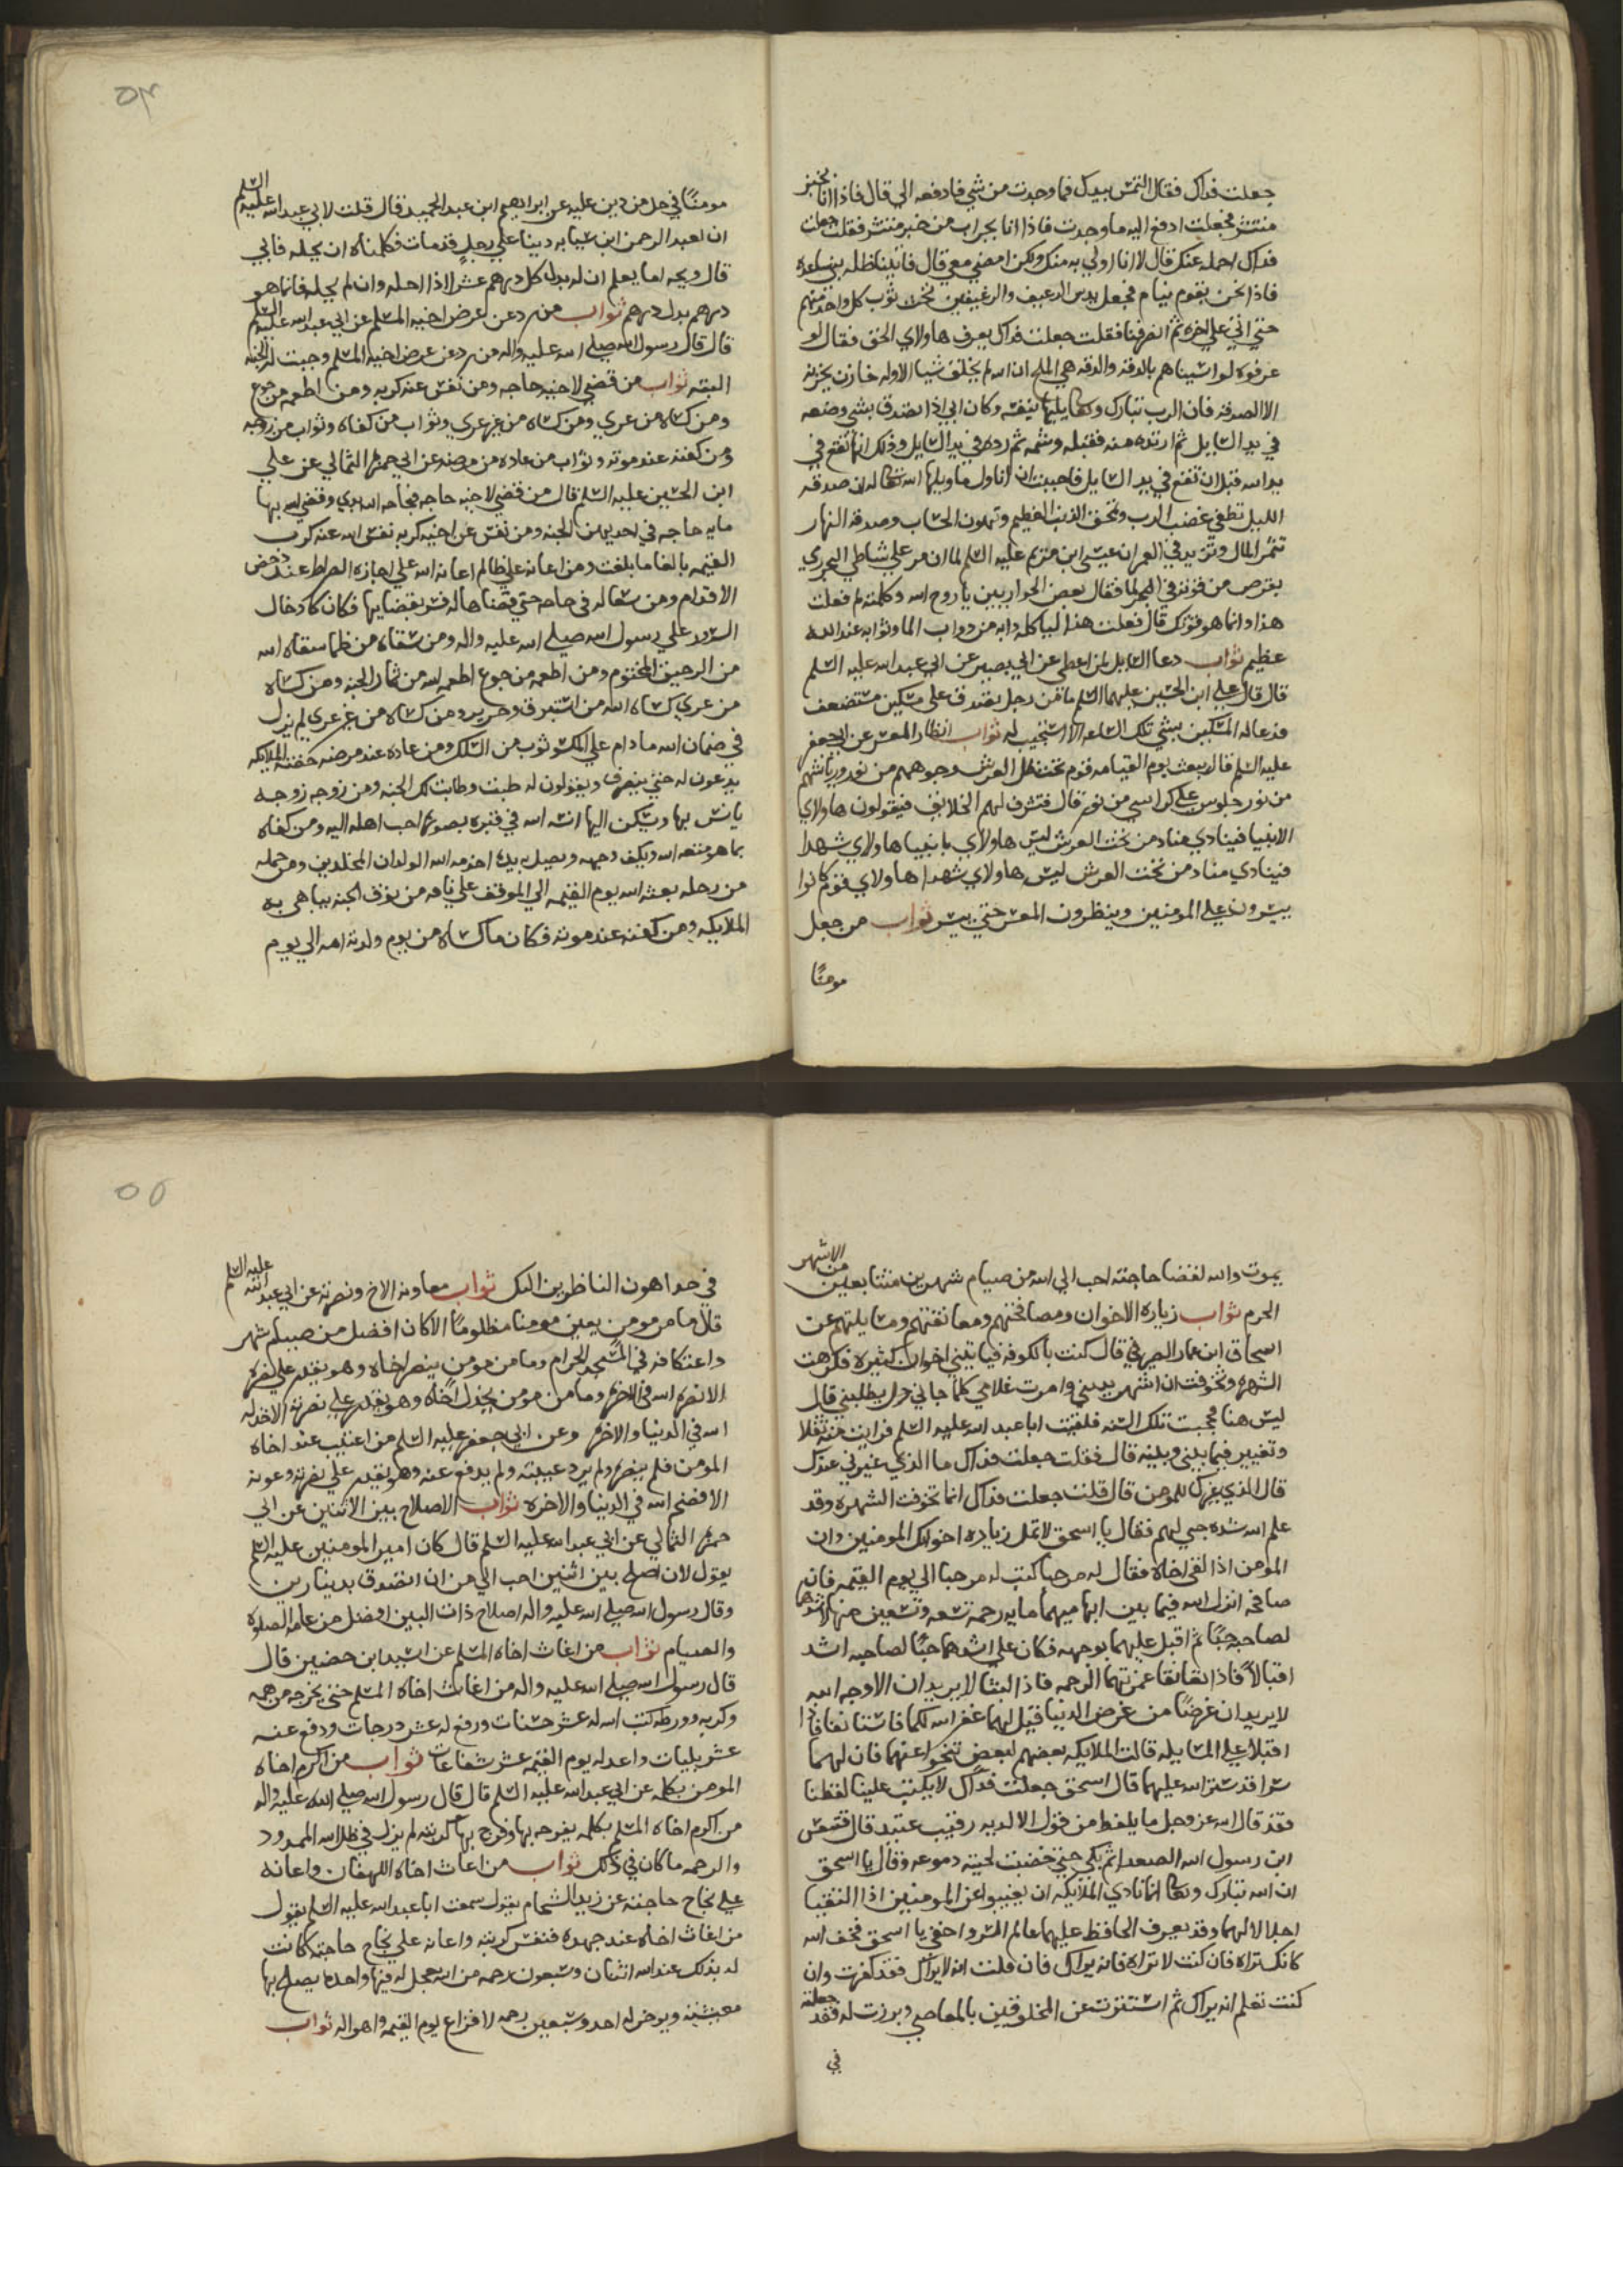 جعلت فداك فقال التمس بيدك فما وجدت من شي فادفعه الي قال فاذا انا بخبز
منتثر فجعلت ادفع اليه ما وجدت فاذا انا بجراب من خبز منتثر فقلت جعلت
فداك احمله عنك قال لا انا اولي به منك ولكن امضي معي قال فاتينا ظله بني ساعده
فاذا نحن بقوم نيام فجعل يدس الرغيف والرغيفين تحت ثوب كل واحد منهم
حتي اتي علي اخره ثم انصرفنا فقلت جعلت فداك يعرف هاولاي الحق فقال لو
عرفوه لواسيناهم بالدقه والدقه هي الملح ان الله لم يخلق شيا الا وله خازن يخزنه
الا الصدقه فان الرب تبارك وتعالي يليها بنفسه وكان ابي اذا تصدق بشي وضعه
في يد السايل ثم ارتده منه فقبله وشمه ثم رده في يد السايل وذلك انها تقع في
يد الله قبل ان تقع في يد السايل فاحببت ان اناول ما وليها الله تعالي ان صدقه
الليل تطفي غضب الرب وتمحق الذنب العظيم وتهون الحساب وصدقه النهار
تثمر المال وتزيد في العمر ان عيسي ابن مريم عليه السلم لما ان مر علي شاطي البحر رمي
بقرص من قوته في البحر لما فقال بعض الحواريين يا روح الله وكلمته لم فعلت
هذا وانما هو قوتك قال فعلت هذا لياكله دابه من دواب الما وثوابه عند الله
عظيم ثواب دعا السايل لمن اعطي عن ابي بصير عن ابي عبد الله عليه السلم
قال قال علي ابن الحسين عليهما السلم ما من رجل يتصدق علي مسكين مستضعف
فدعا له المسكين بشي تلك الساعه الا استجيب له ثواب انظار المعسر عن ابي جعفر
عليه السلم قال يبعث يوم القيامه قوم تحت ظل العرش وجوههم من نور ورياشهم
من نور جلوس علي كراسي من نور قال فتشرف لهم الخلايق فيقولون هاولاي
الانبيا فينادي مناد من تحت العرش ليس هاولاي بانبيا هاولاي شهدا
فينادي مناد من تحت العرش ليس هاولاي شهدا هاولاي قوم كانوا
ييسرون علي المومنين وينظرون المعسر حتي ييسر ثواب من جعل
مومنًا
٥٤
مومنًا في حل من دين عليه عن ابراهيم ابن عبد الحميد قال قلت لابي عبد الله عليه السلم
ان لعبد الرحمن ابن سيابه دينا علي رجل قد مات فكلمناه ان يحله فابي
قال ويحه اما يعلم ان له بدل كل درهم عشرا اذا احله وان لم يحله فانما هو
درهم بدل درهم ثواب من رد عن عرض اخيه المسلم عن ابي عبد الله عليه السلم
قال قال رسول الله صلي الله عليه واله من رد عن عرض اخيه المسلم وجبت له الجنه
البته ثواب من قضي لاخيه حاجه ومن نفس عنه كربه ومن اطعمه من جوع
ومن كساه من عري ومن كساه من غير عري وثواب من كفاه وثواب من زوجه
ومن كفنه عند موته وثواب من عاده من مرضه عن ابي حمزه الثمالي عن علي
ابن الحسين عليه السلم قال من قضي لاخيه حاجه فبحاجه الله بدي وقضي الله بها
مايه حاجه في احديهن الجنه ومن نفس عن اخيه كربه نفس الله عنه كرب
القيمه بالغا ما بلغت ومن اعانه علي ظالم اعانه الله علي اجازه الصراط عند دحض
الاقدام ومن سعا له في حاجه حتي قضاها له فسر بقضايها فكان كادخال
السرور علي رسول الله صلي الله عليه واله ومن سقاه من ظما سقاه الله
من الرحيق المختوم ومن اطعمه من جوع اطعمه الله من ثمار الجنه ومن كساه
من عري كساه الله من استبرق وحرير ومن كساه من غير عري لم يزل
في ضمان الله ما دام علي المكسو ثوب من السلك ومن عاده عند مرضه حفته الملايكه
يدعون له حتي ينصرف ويقولون له طبت وطابت لك الجنه ومن زوجه زوجه
يانس بها ويسكن اليها انسه الله في قبره بصوره احب اهله اليه ومن كفاه
بما هو متعه الله ويكف وجهه ويصل به يده اخدمه الله الولدان المخلدين ومن حمله
من رحله بعثه الله يوم القيمه الي الموقف علي ناقه من نوق الجنه يباهي به
الملايكه ومن كفنه عند موته فكان ما كساه من يوم ولدته امه الي يوم
يموت والله لقضا حاجته احب الي الله من صيام شهرين متتابعين من الاشهر
الحرم ثواب زياره الاخوان ومصافحتهم ومعانقتهم ومسايلتهم عن
اسحاق ابن عمار الصيرفي قال كنت بالكوفه فياتيني اخوان كثيره فكرهت
الشهره وتخوفت ان اشتهر بديني وامرت غلامي كلما جاني رجل يطلبني قال
ليس هنا فحججت تلك السنه فلقيت ابا عبد الله عليه السلم فرايت منه ثقلا
وتغيير فيما بيني وبينه قال فقلت جعلت فداك ما الذي غيرني عندك
قال الذي غيرك للمومن قال قلت جعلت فداك انما تخوفت الشهره وقد
علم الله شده حبي لهم فقال يا اسحق لا تمل زياره اخوانك المومنين وان
المومن اذا لقي اخاه فقال له مرحبا كتب له مرحبا الي يوم القيمه فان
صافحه انزل الله فيما بين ابهاميهما مايه رحمه تسعه وتسعين منها لاشدهما
لصاحبه حبًا ثم اقبل عليهما بوجهه فكان علي اشدهما حبًا لصاحبه اشد
اقبالاً فاذا تعانقا غمرتهما الرحمه فاذا لبثا لا يريدان الا وجه الله
لا يريدان غرضًا من غرض الدنيا قيل لهما غفر الله لكما فاستانفا فاذا
اقبلا علي المسايله قالت الملايكه بعضهم لبعض تنحوا عنهما فان لهما
سرا قد ستر الله عليهما قال اسحق جعلت فداك لا يكتب علينا لفظنا
فقد قال الله عز وجل ما يلفظ من قول الا لديه رقيب عتيد قال فتنفس
ابن رسول الله الصعدا ثم بكي حتي خضبت لحيته دموعه وقال يا اسحق
ان الله تبارك وتعالي انما نادي الملايكه ان يغيبوا عن المومنين اذا التقيا
اجلالا لهما وقد يعرف الحافظ عليهما عالم السر واخفي يا اسحق فخف الله
كانك تراه فان كنت لا تراه فانه يراك فان قلت انه لا يراك فقد كفرت وان
كنت تعلم انه يراك ثم استترت عن المخلوقين بالمعاصي وبرزت له فقد جعلته
في
٥٥
في حد اهون الناظرين اليك ثواب معاونه الاخ ونصرته عن ابي عبد الله عليه السلم
قال ما من مومن يعين مومنا مظلومًا الا كان افضل من صيام شهر
واعتكافه في المسجد الحرام وما من مومن ينصر اخاه وهو يقدر علي نصره
الا نصره الله في الاخره وما من مومن يخذل اخاه وهو يقدر علي نصرته الا خذله
الله في الدنيا والاخره وعن ابي جعفر عليه السلم من اغتيب عنده اخاه
المومن فلم ينصره ولم يرد غيبته ولم يدفع عنه وهو يقدر علي نصرته وعونه
الا فضحه الله في الدنيا والاخره ثواب الاصلاح بين الاثنين عن ابي
حمزه الثمالي عن ابي عبد الله عليه السلم قال كان امير المومنين عليه السلم
يقول لان اصلح بين اثنين احب الي من ان اتصدق بدينارين
وقال رسول الله صلي الله عليه واله اصلاح ذات البين افضل من عامه الصلوه
والصيام ثواب من اغاث اخاه المسلم عن اسيد ابن حضين قال
قال رسول الله صلي الله عليه واله من اغاث اخاه المسلم حتي يخرجه من همه
وكربه وورطه كتب الله له عشر حسنات ورفع له عشر درجات ودفع عنه
عشر بليات واعد له يوم القيمه عشر شفاعات ثواب من اكرم اخاه
المومن بكلمه عن ابي عبد الله عليه السلم قال قال رسول الله صلي الله عليه واله
من اكرم اخاه المسلم بكلمه يفرحه بها وفرج بها كربته لم يزل في ظل الله الممدود
والرحمه ما كان في ذلك ثواب من اغاث اخاه اللهفان واعانه
علي نجاح حاجته عن زيد الشحام يقول سمعت ابا عبد الله عليه السلم يقول
من اغاث اخاه عند جهده فنفس كربته واعانه علي نجاح حاجته كانت
له بذلك عند الله اثنان وسبعون رحمه من الله يعجل له فيها واحده يصلح بها
معيشته ويوخر له احد وسبعين رحمه لافزاع يوم القيمه واهواله ثواب